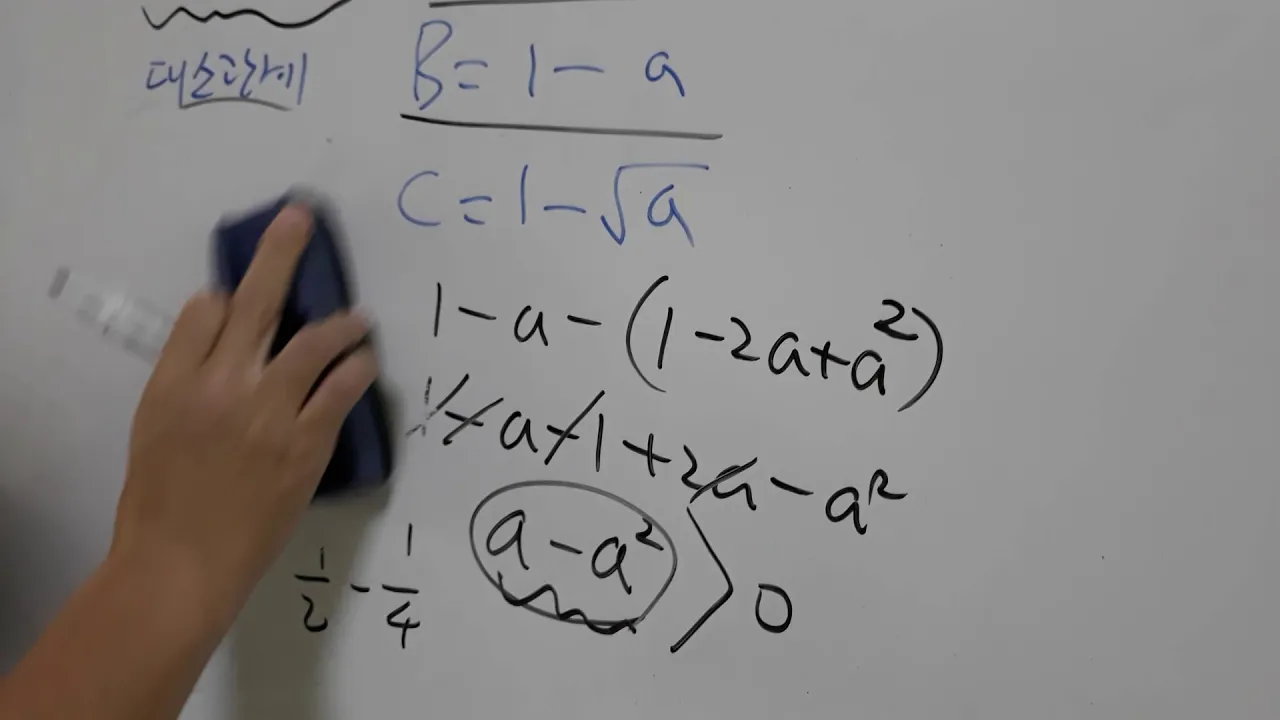 대소관계
B = 1 - a
C = 1 - √a
1 - a - (1 - 2a + a²)
1 - a - 1 + 2a - a²
1/2 - 1/4 a - a² > 0